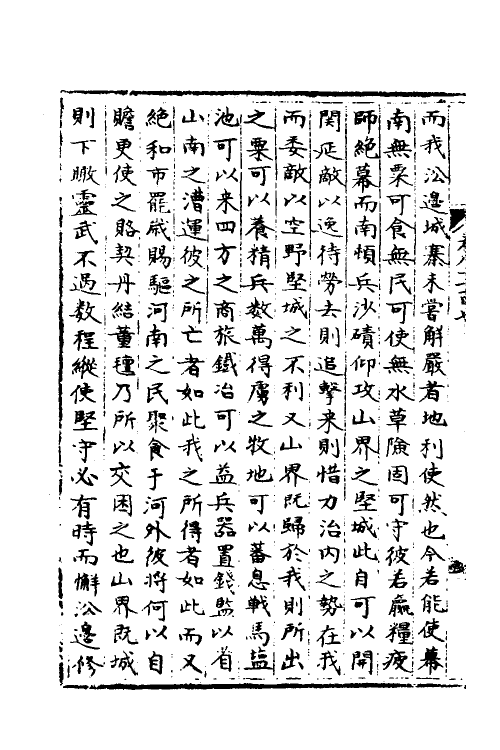 而我㳂邉城寨未嘗解嚴者地利使然也今若能使幕
南無粟可食無民可使無水草險固可守彼若羸糧疲
師絶幕而南頓兵沙磧仰攻山界之堅城此自可以開
関延敵以逸待勞去則追擊来則惜力治内之勢在我
而委敵以空野堅城之不利又山界既歸於我則所出
之粟可以養精兵数萬得虜之牧地可以蕃息戰馬塩
池可以来四方之商旅鐡冶可以益兵器置錢監以省
山南之漕運彼之所亡者如此我之所得者如此而又
絶和市罷歳賜驅河南之民聚食于河外彼将何以自
贍更使之賂契丹結董氊乃所以交困之也山界既城
則下瞰靈武不過数程縱使堅守必有時而懈㳂邉修